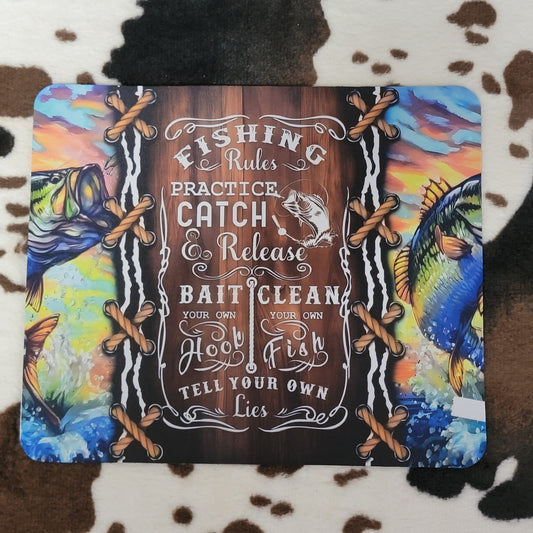 FISHING
Rules
PRACTICE
CATCH
& Release
BAIT CLEAN
YOUR OWN YOUR OWN
Hook Fish
TELL YOUR OWN
Lies